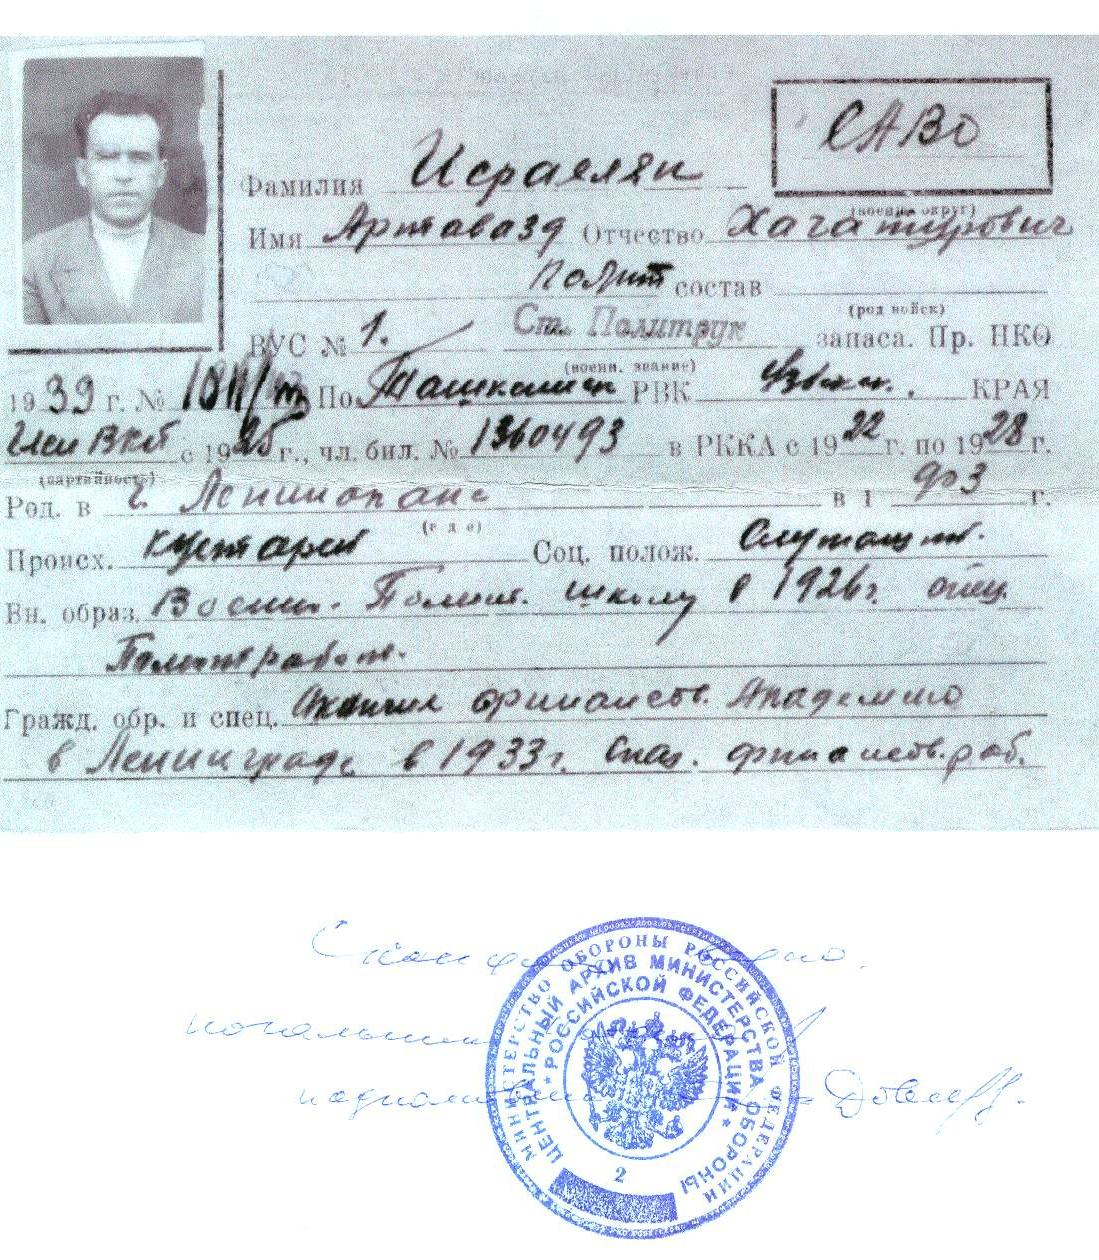 САВО
Фамилия Исраелян
(военн. округ)
Имя Артавазд Отчество Хачатурович
Полит состав
(род войск)
ВУС № 1. Ст. Политрук запаса. Пр. НКО
(военн. звание)
1939 г. № По Ташкентск РВК Узбекс. КРАЯ
Член ВКб с 1925 г., чл. бил. № 1360493 в РККА с 1922 г. по 1928 г.
(партийность)
Род. в г. Ленинакане в 1 903 г.
(где)
Происх. кустарей Соц. полож. Служащий.
Вн. образ. Военн. Полит. школу в 1926 г. спец.
Политработ.
Гражд. обр. и спец. Окончил финансов. Академию
в Ленинграде в 1933 г. Спец. финансов. раб.
МИНИСТЕРСТВО ОБОРОНЫ РОССИЙСКОЙ ФЕДЕРАЦИИ
ЦЕНТРАЛЬНЫЙ АРХИВ МИНИСТЕРСТВА ОБОРОНЫ
* РОССИЙСКОЙ ФЕДЕРАЦИИ *
2